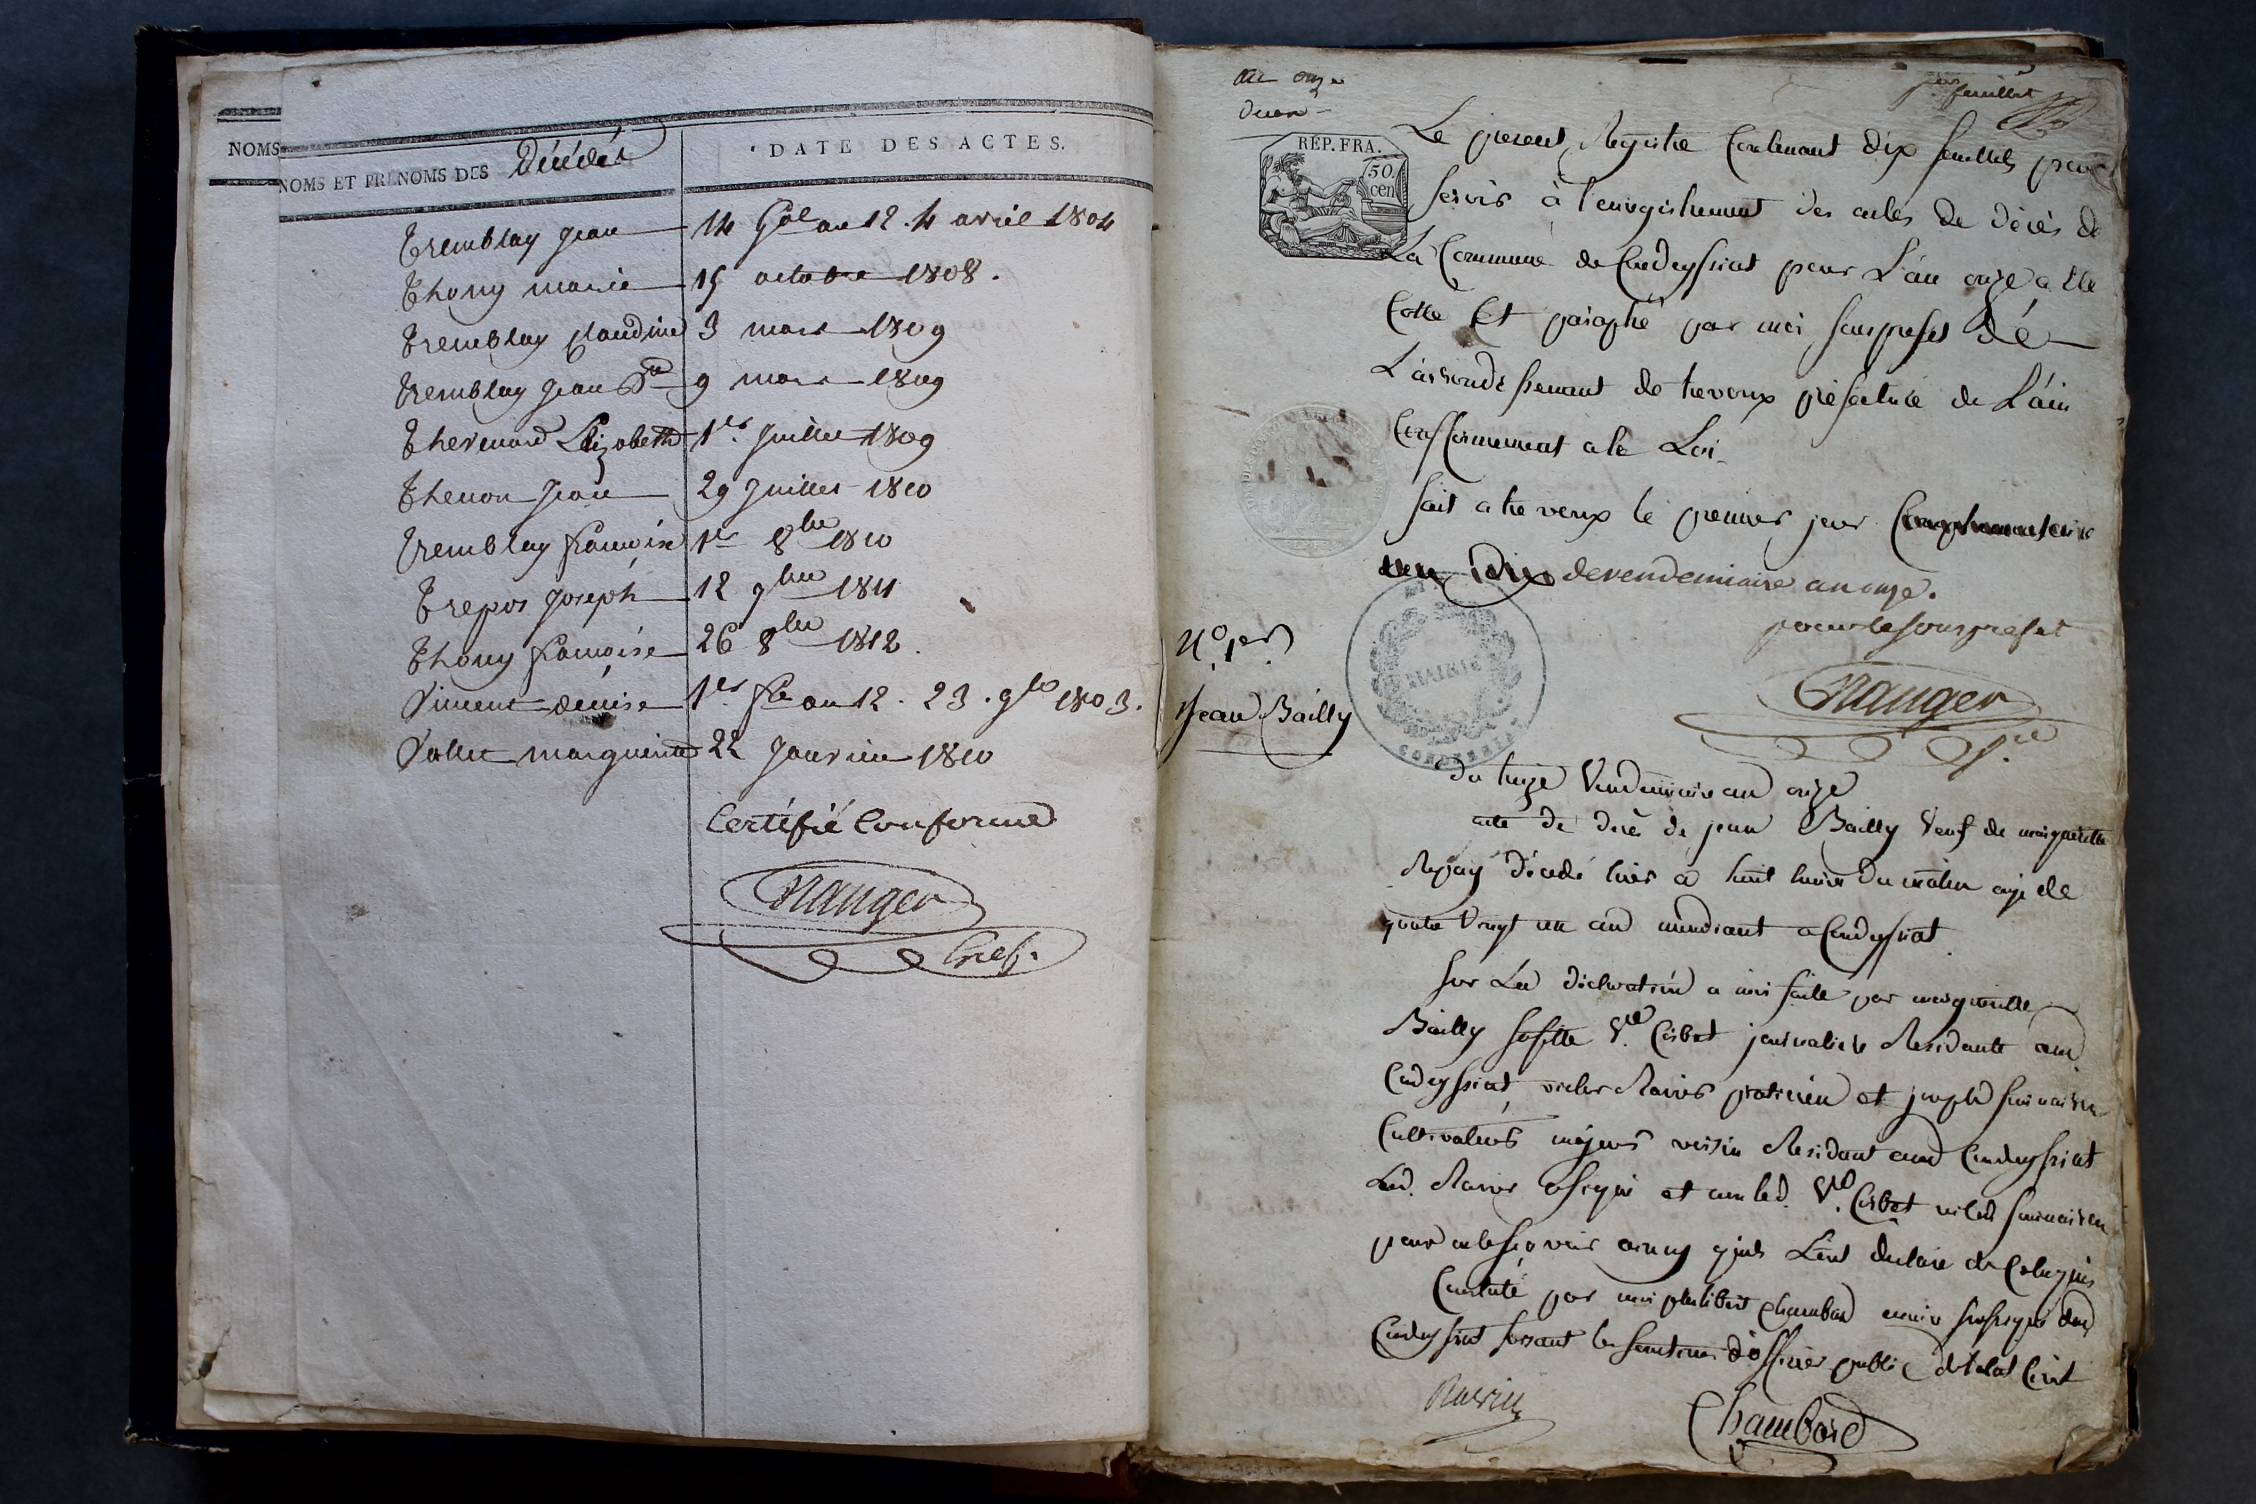 NOMS
NOMS ET PRÉNOMS DES Décédés
DATE DES ACTES.
Tremblay jean 14 Gal an 12. 4 avril 1804
Thony marie 15 octobre 1808.
Tremblay claudine 3 mars 1809
Tremblay jean Bte 9 mars 1809
Thevenard Elizabeth 1er juillet 1809
Thenon jean 29 juillet 1810
Tremblay françoise 1er 8bre 1810
Trepos joseph 12 9bre 1811
Thony françoise 26 8bre 1812.
Vincent denise 1er fre an 12. 23. 9bre 1803.
Vollet marguerite 22 janvier 1810
Certifié Conforme
Nauger
Gref.
an onze
feuillet
RÉP. FRA.
50 cen
Le present Registre Contenant dix feuillets pour
servir à l'enregistrement des actes de décès de
La Commune de Condeyssiat pour L'an onze a été
Cotté Et paraphé par moi sousprefet dé
L'arrondissement de trevoux préfecture de L'ain
Conformement a la Loi
fait a trevoux le premier jour
de vendemiaire an onze.
pour le sousprefet
Nauger
MAIRIE
No. 1er
Jean Bailly
Du treize Vendemiaire an onze
acte de décè de jean Bailly Veuf de marguerite
Repay décédé hier a huit heure du matin agé de
quatre Vingt un an mendiant a Condeyssiat
sur La déclaration a moi faite par marguerite
Bailly sa fille Ve. Corbet journaliere Residante aud
Condeyssiat et joseph
Cultivateur majeurs voisin Residant aud Condeyssiat
Led. et non lad. Ve. Corbet
pour ne le sçavoir ainsy quils L'ont declaré de Ce Requis
Constaté par moi philibert Chambard maire soussigné dud
Condeyssiat faisant les fonctions d'officier public de l'etat Civil
Chambard